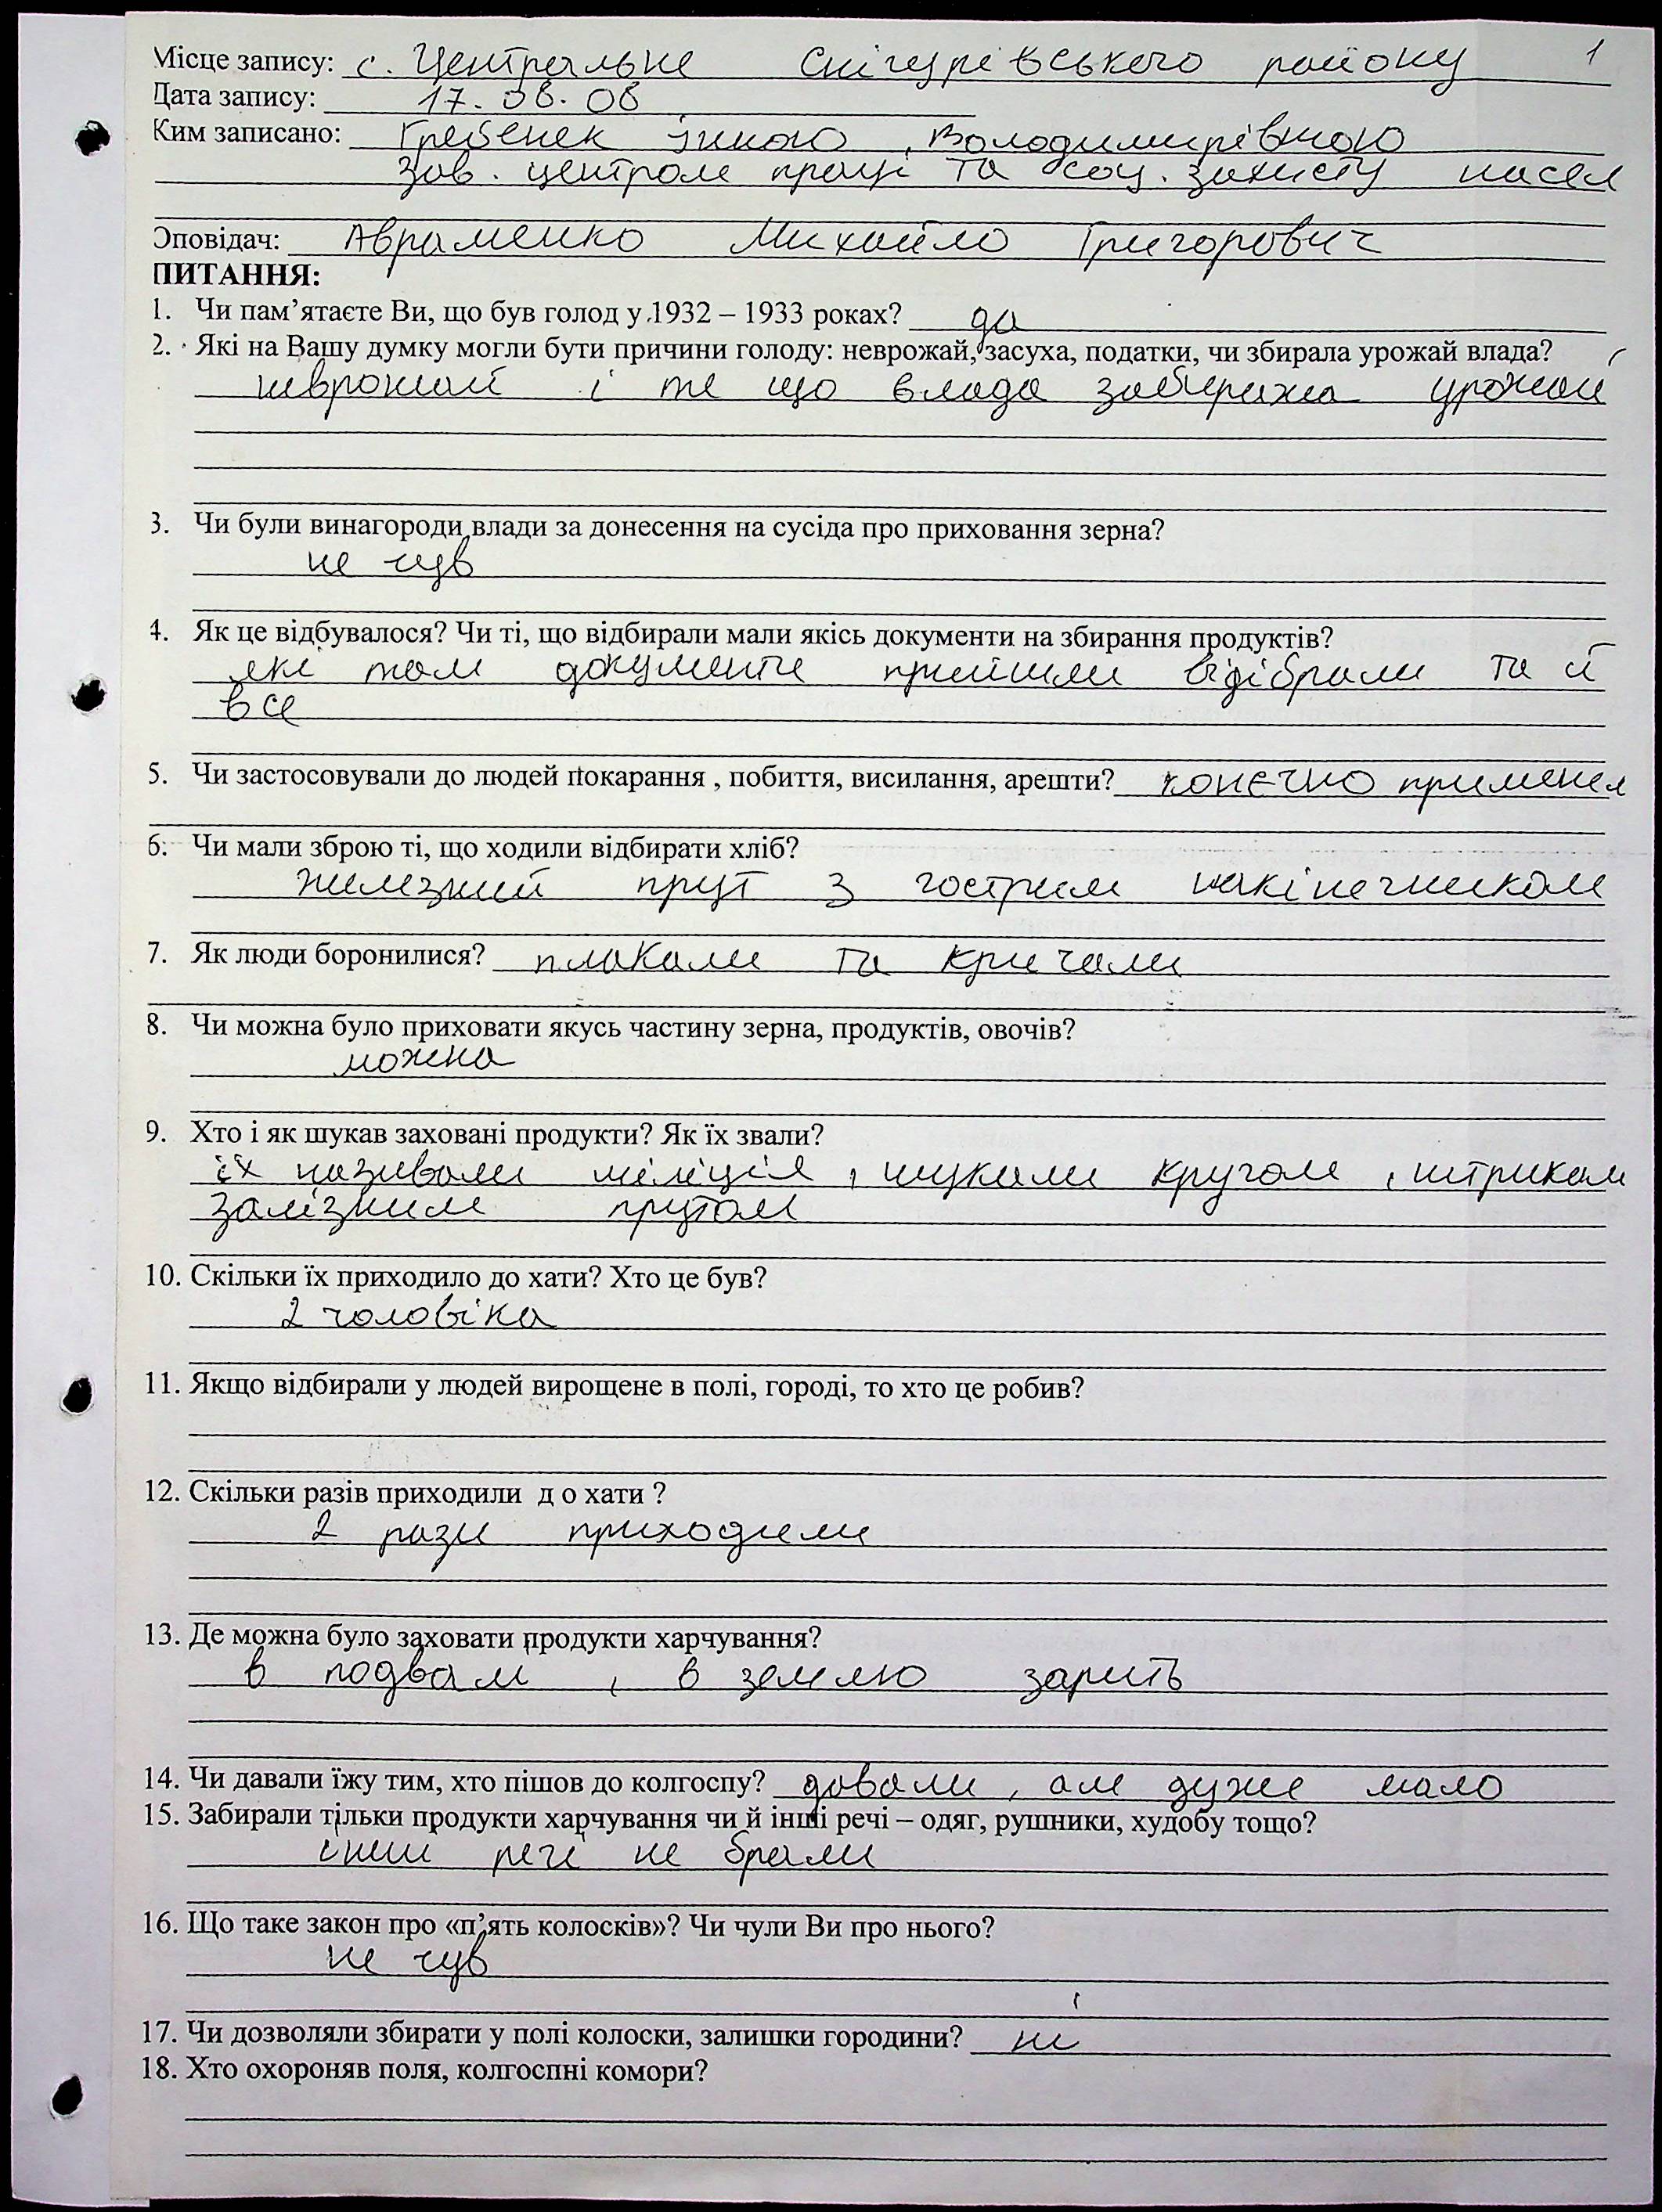 Місце запису: с. Центральне Снігурівського району 1
Дата запису: 17.08.08
Ким записано: Гребенек Інною Володимирівною
Зав. центром праці та соц. захисту насел
Оповідач: Авраменко Михайло Григорович
ПИТАННЯ:
1. Чи пам’ятаєте Ви, що був голод у 1932 – 1933 роках? да
2. Які на Вашу думку могли бути причини голоду: неврожай, засуха, податки, чи збирала урожай влада?
неврожай і те що влада забирала урожай
3. Чи були винагороди влади за донесення на сусіда про приховання зерна?
не чув
4. Як це відбувалося? Чи ті, що відбирали мали якісь документи на збирання продуктів?
які там документи прийшли відібрали та й
все
5. Чи застосовували до людей покарання , побиття, висилання, арешти? конечно применял
6. Чи мали зброю ті, що ходили відбирати хліб?
железний прут з гострим накінечником
7. Як люди боронилися? плакали та кричали
8. Чи можна було приховати якусь частину зерна, продуктів, овочів?
можна
9. Хто і як шукав заховані продукти? Як їх звали?
їх називали міліція , шукали кругом , штрикали
залізним прутом
10. Скільки їх приходило до хати? Хто це був?
2 чоловіка
11. Якщо відбирали у людей вирощене в полі, городі, то хто це робив?
12. Скільки разів приходили д о хати ?
2 рази приходили
13. Де можна було заховати продукти харчування?
в подвал , в землю зарить
14. Чи давали їжу тим, хто пішов до колгоспу? давали , але дуже мало
15. Забирали тільки продукти харчування чи й інші речі – одяг, рушники, худобу тощо?
інши речі не брали
16. Що таке закон про «п’ять колосків»? Чи чули Ви про нього?
не чув
17. Чи дозволяли збирати у полі колоски, залишки городини? ні
18. Хто охороняв поля, колгоспні комори?